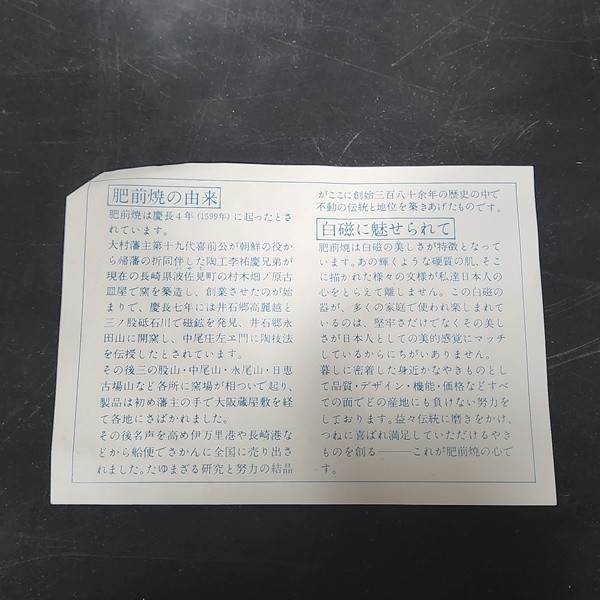 肥前焼の由来
肥前焼は慶長4年(1599年)に起ったとさ
れています。
大村藩主第十九代喜前公が朝鮮の役か
ら帰藩の折同伴した陶工李祐慶兄弟が
現在の長崎県波佐見町の村木畑ノ原古
皿屋で窯を築造し、創業させたのが始
まりで、慶長七年には井石郷高麗越と
三ノ股砥石川で磁鉱を発見、井石郷永
田山に開窯し、中尾庄左ヱ門に陶技法
を伝授したとされています。
その後三の股山・中尾山・永尾山・日恵
古場山など各所に窯場が相ついで起り、
製品は初め藩主の手で大阪蔵屋敷を経
て各地にさばかれました。
その後名声を高め伊万里港や長崎港な
どから船便でさかんに全国に売り出さ
れました。たゆまざる研究と努力の結晶
がここに創始三百八十余年の歴史の中で
不動の伝統と地位を築きあげたものです。
白磁に魅せられて
肥前焼は白磁の美しさが特徴となって
います。あの輝くような硬質の肌、そこ
に描かれた様々の文様が私達日本人の
心をとらえて離しません。この白磁の
器が、多くの家庭で使われ楽しまれて
いるのは、堅牢さだけでなくその美し
さが日本人としての美的感覚にマッチ
しているからにちがいありません。
暮しに密着した身近かなやきものとし
て品質・デザイン・機能・価格などすべ
ての面でどの産地にも負けない努力を
しております。益々伝統に磨きをかけ、
つねに喜ばれ満足していただけるやき
ものを創る———これが肥前焼の心で
す。